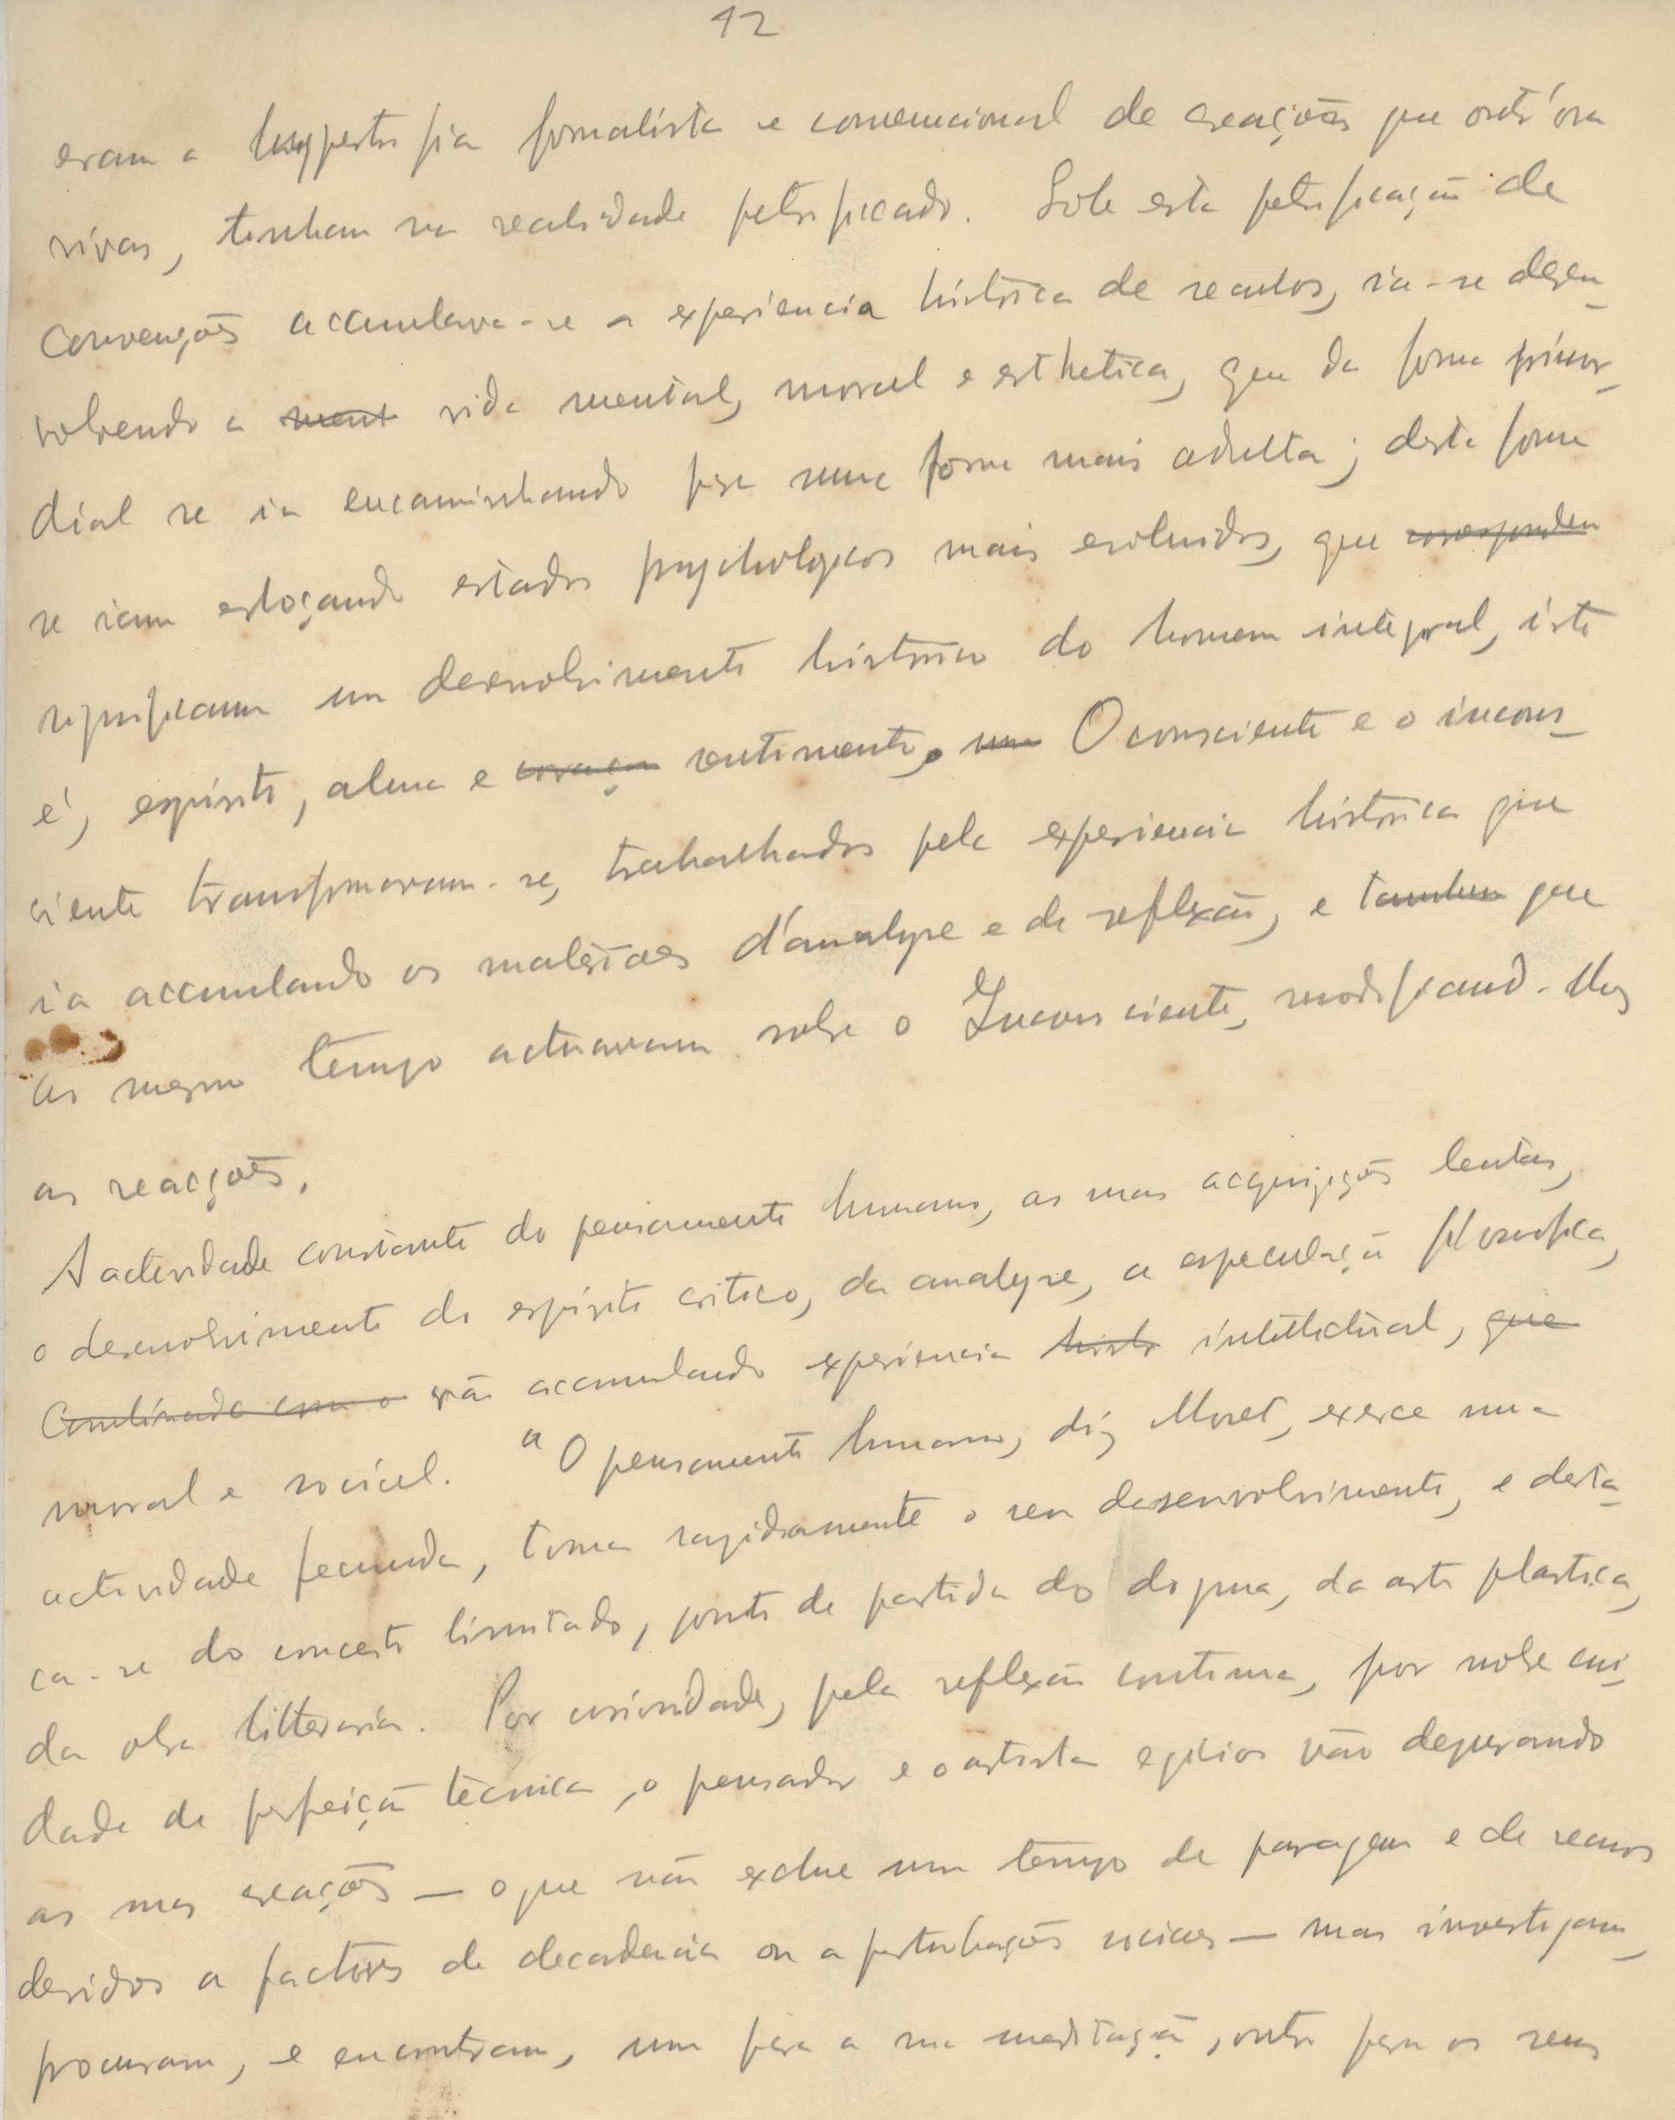 12
eram a hypertrofia formalista e convencional de creações que outr'ora
vivas, tinham na realidade petrificado. Sob esta petrificação de
convenções accumulava-se a experiencia histórica de seculos, ia-se desen-
volvendo a ment vida mental, moral e esthetica, que da forma primor-
dial se ia encaminhando para uma forma mais adulta; desta forma
se iam esboçando estados psychologicos mais evoluidos, que correspondem
significam um desenvolvimento histórico do homem integral, isto
é, espirito, alma e coração sentimento. um O consciente e o incons-
ciente transformavam-se, trabalhados pela experiencia histórica que
ia accumulando os materiaes d'analyse e de reflexão, e tambem que
ao mesmo tempo actuavam sobre o Inconsciente, modificand-lhes
as reacções.
A actividade constante do pensamento humano, as suas acquisições lentas,
o desenvolvimento do espirito critico, da analyse, a especulação filosofica,
Combinada com o vão accumulando experiencia histo intellectual, que
moral e social. "O pensamento humano, diz Moret, exerce uma
actividade fecunda, toma rapidamente o seu desenvolvimento, e desta-
ca-se do conceito limitado, ponto de partida do dogma, da arte plastica,
da obra litteraria. Por curiosidade, pela reflexão continua, por nobre cui-
dado de perfeição tècnica, o pensador e o artista egícios vão depurando
as suas creações — o que não exclue um tempo de paragem e de recuos
devidos a factores de decadencia ou a perturbações sociaes — mas investigam,
procuram, e encontram, um para a sua meditação, outro para os seus